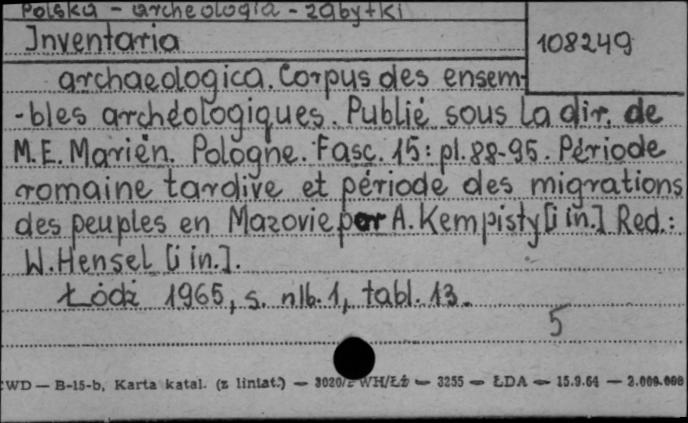 Polska - archeologia - zabytki
Inventaria
108249
archaeologica. Corpus des ensem-
-bles archéologiques. Publié sous la dir. de
M.E. Mariën. Pologne. Fasc. 15: pl. 88-95. Période
romaine tardive et période des migrations
des peuples en Mazovie par A. Kempisty [i in.] Red.:
W. Hensel [i in.].
Łódź 1965, s. nlb. 1, tabl. 13.
5
CWD — B-15-b, Karta katal. (z liniat.) — 3020/ WH/Łż — 3255 — ŁDA — 15.9.64 — 2.000.000